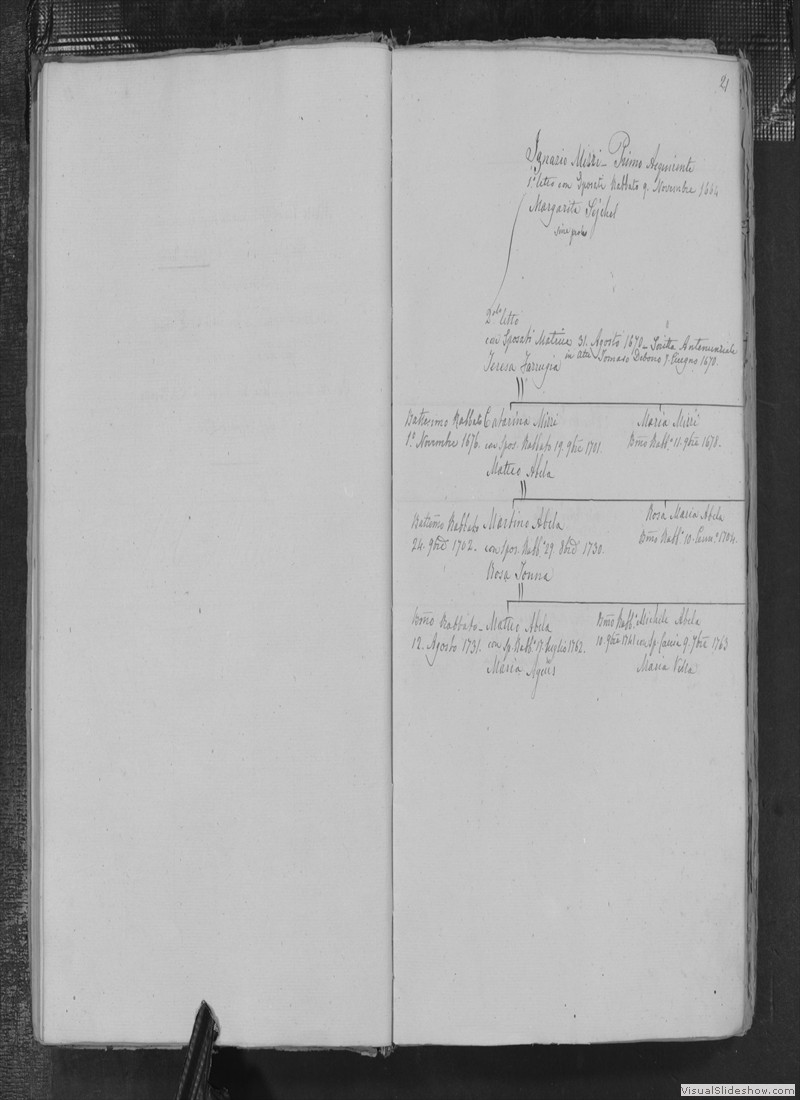 21
Ignazio Mizzi - Primo Acquirente
1º letto con Sposati Rabbato 9. Novembre 1664
Margarita Sejchel
sine prole
2do letto
con Sposati Matrice 31. Agosto 1670 - Scritta Antenunziale
Teresa Farrugia in atti Tomaso Debono 7. Giugno 1670.
Battesimo Rabbato Catarina Mizzi
1º Novembre 1676. con Spos. Rabbato 19. 9bre 1701.
Matteo Abela
Maria Mizzi
Bmo Rabbº 11. 9bre 1678.
Battesmo Rabbato Martino Abela
24. 9bre 1702. con Spos. Rabbº 29. 8bre 1730.
Rosa Tonna
Rosa Maria Abela
Bmo Rabbº 10. 1704.
Bmo Rabbato - Matteo Abela
12. Agosto 1731. con Sp. Rabbº 17. Luglio 1762.
Maria Agius
Bmo Rabbº Michele Abela
10 9bre 1741 con Sp. 9. 7bre 1763
Maria Vella
VisualSlideshow.com